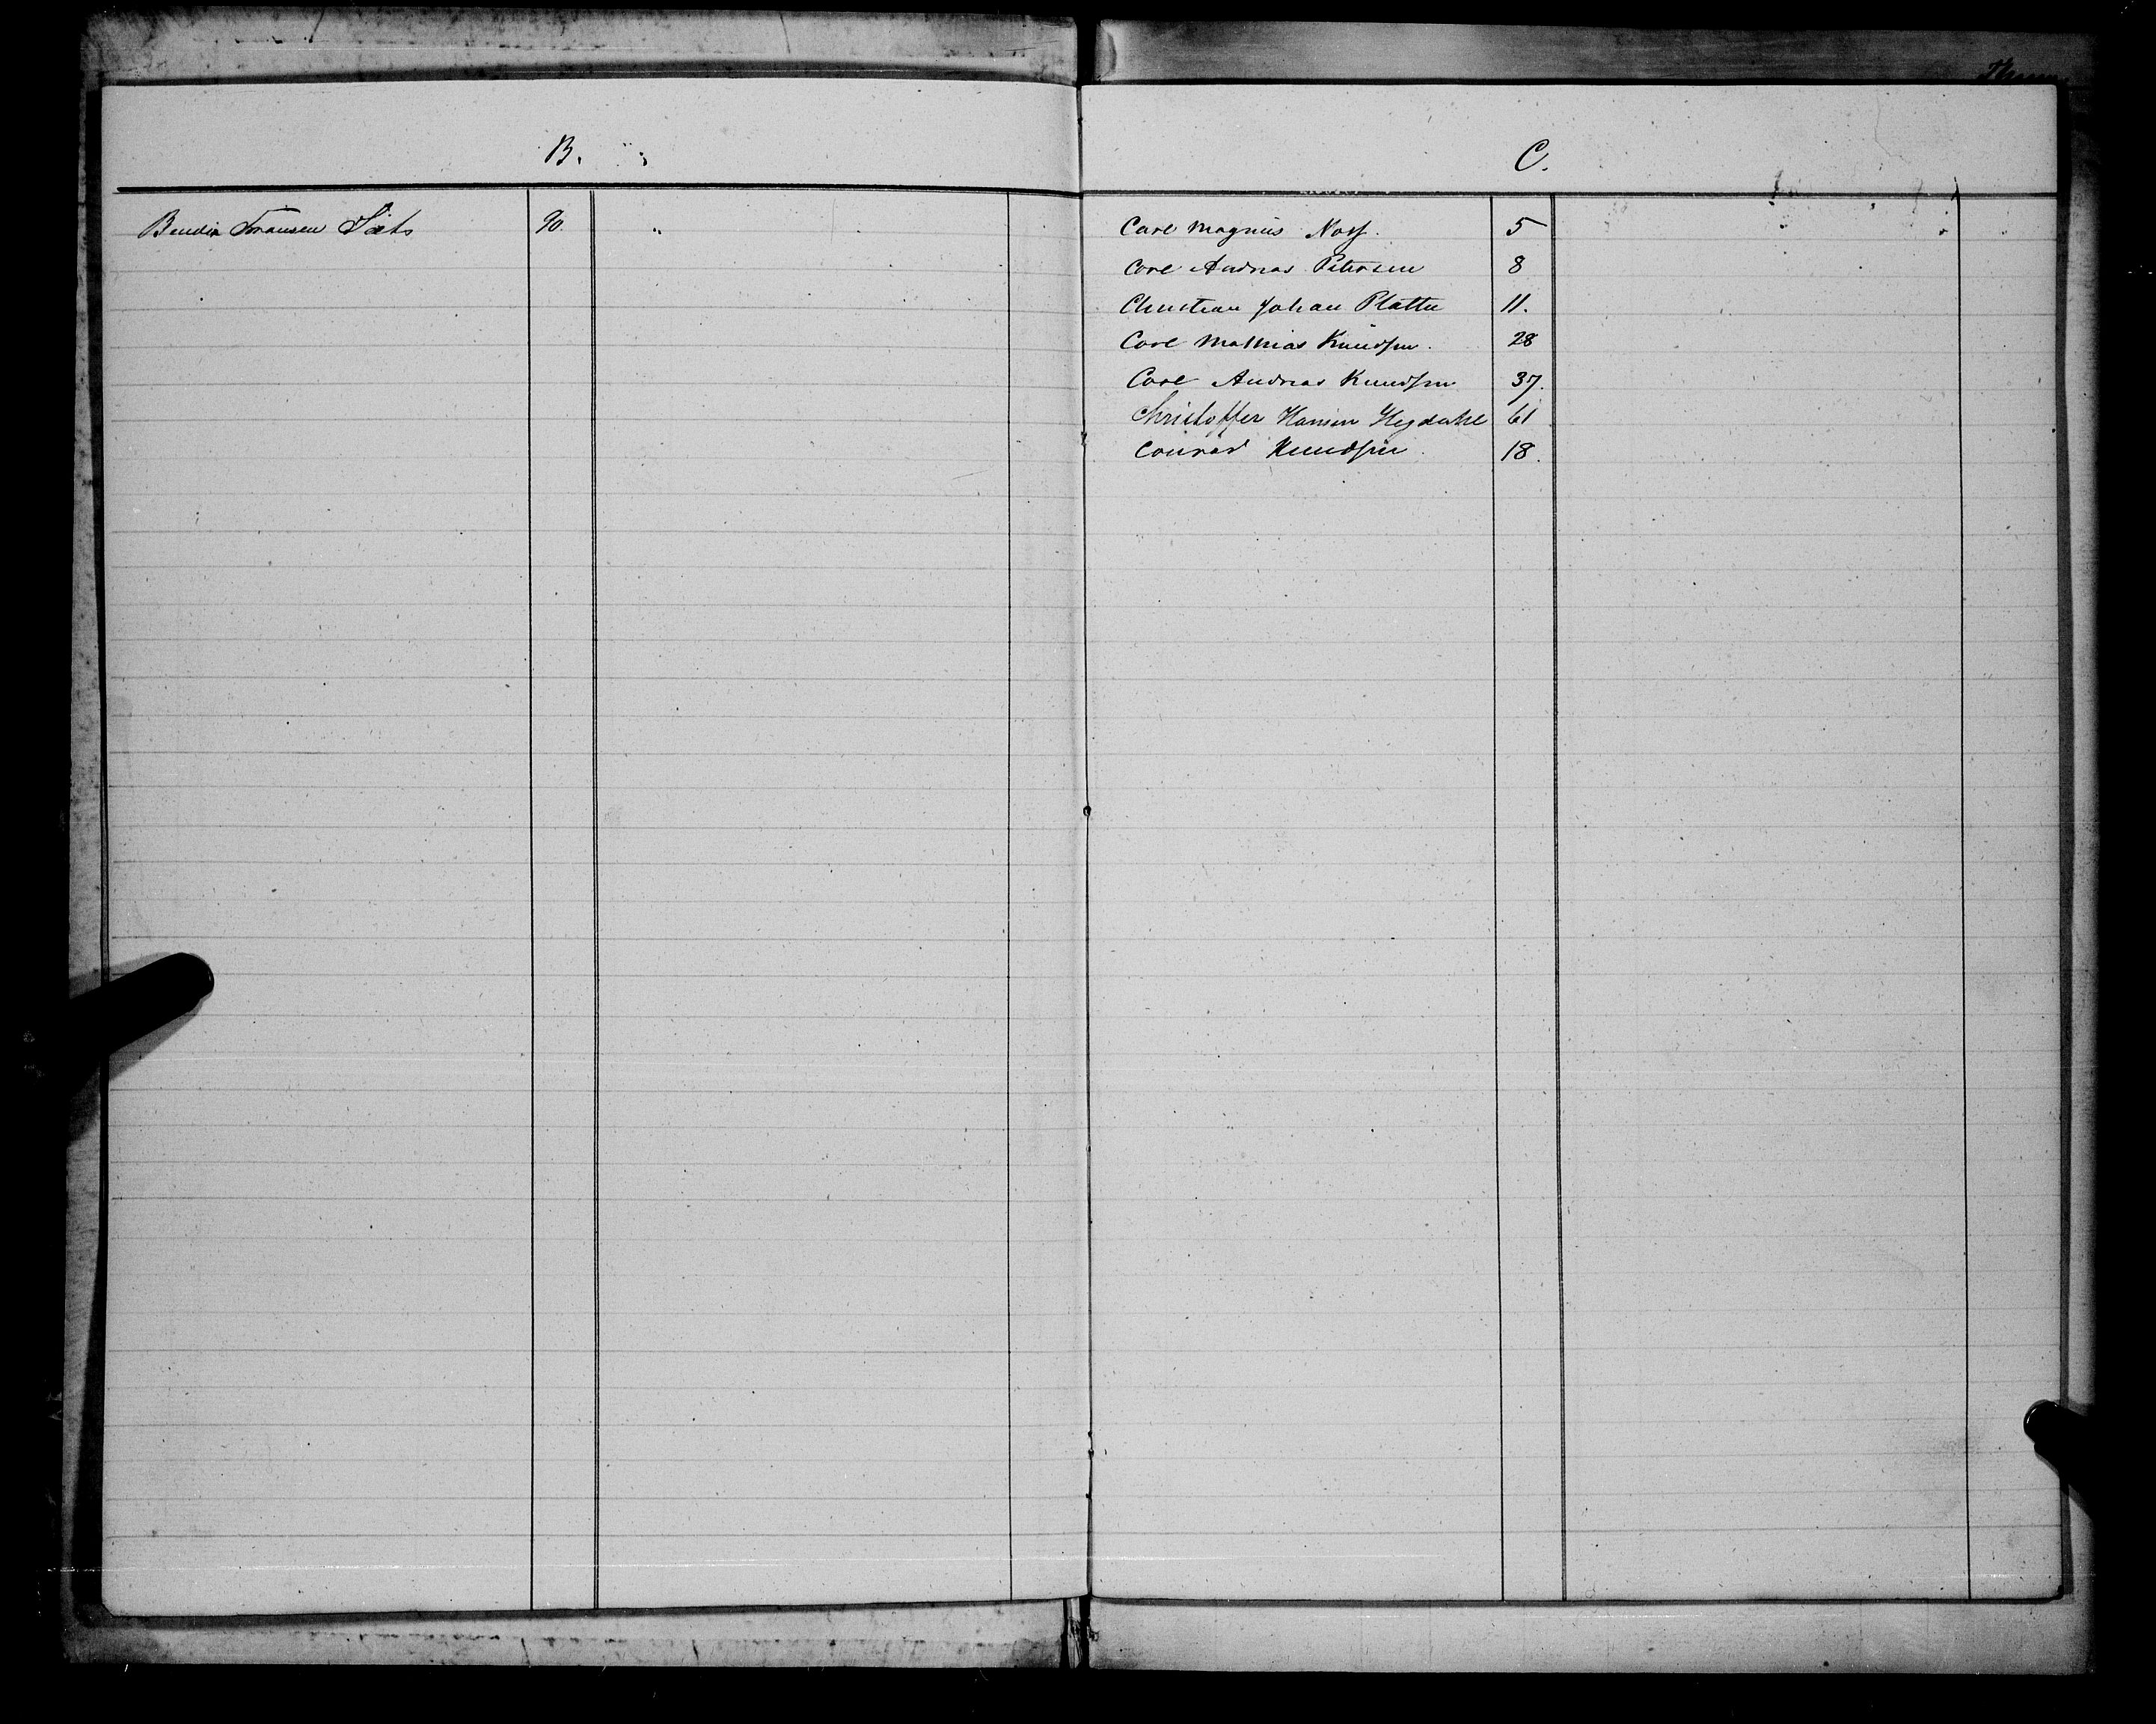 B.
Bendix Fransen Sæts 90.
C.
Carl Magnus Noss. 5
Carl Andreas Petersen 8
Christian Johan Plattu 11.
Carl Mathias Knudsen. 28
Carl Andreas Knudsen 37.
Christoffer Hansen Hegdahl 61
Conrad Knudsen. 18.